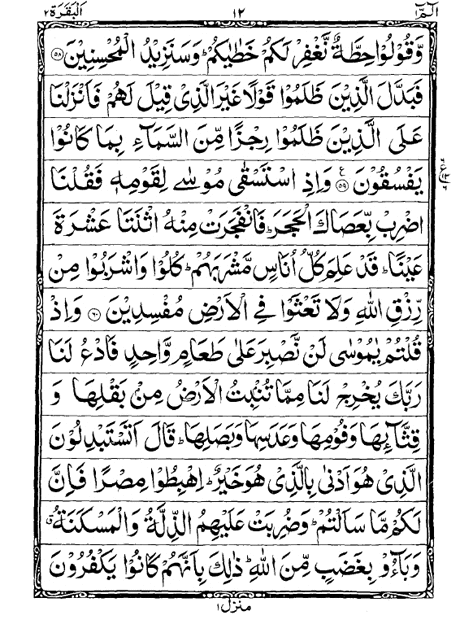 الٓمّٓ ١
١٢
البقرة ٢
وَّقُوْلُوْا حِطَّةٌ نَّغْفِرْ لَكُمْ خَطٰيٰكُمْ ؕ وَسَنَزِيْدُ الْمُحْسِنِيْنَ ﴿٥٨﴾
فَبَدَّلَ الَّذِيْنَ ظَلَمُوْا قَوْلًا غَيْرَ الَّذِىْ قِيْلَ لَهُمْ فَاَنْزَلْنَا
عَلَى الَّذِيْنَ ظَلَمُوْا رِجْزًا مِّنَ السَّمَآءِ بِمَا كَانُوْا
يَفْسُقُوْنَ ﴿٥٩﴾ ع وَاِذِ اسْتَسْقٰى مُوْسٰى لِقَوْمِهٖ فَقُلْنَا
اضْرِبْ بِّعَصَاكَ الْحَجَرَ ؕ فَانْفَجَرَتْ مِنْهُ اثْنَتَا عَشْرَةَ
عَيْنًا ؕ قَدْ عَلِمَ كُلُّ اُنَاسٍ مَّشْرَبَهُمْ ؕ كُلُوْا وَاشْرَبُوْا مِنْ
رِّزْقِ اللّٰهِ وَلَا تَعْثَوْا فِى الْاَرْضِ مُفْسِدِيْنَ ﴿٦٠﴾ وَاِذْ
قُلْتُمْ يٰمُوْسٰى لَنْ نَّصْبِرَ عَلٰى طَعَامٍ وَّاحِدٍ فَادْعُ لَنَا
رَبَّكَ يُخْرِجْ لَنَا مِمَّا تُنْۢبِتُ الْاَرْضُ مِنْۢ بَقْلِهَا وَ
قِثَّآئِهَا وَفُوْمِهَا وَعَدَسِهَا وَبَصَلِهَا ؕ قَالَ اَتَسْتَبْدِلُوْنَ
الَّذِىْ هُوَ اَدْنٰى بِالَّذِىْ هُوَ خَيْرٌ ؕ اِهْبِطُوْا مِصْرًا فَاِنَّ
لَكُمْ مَّا سَاَلْتُمْ ؕ وَضُرِبَتْ عَلَيْهِمُ الذِّلَّةُ وَالْمَسْكَنَةُ
وَبَآءُوْ بِغَضَبٍ مِّنَ اللّٰهِ ؕ ذٰلِكَ بِاَنَّهُمْ كَانُوْا يَكْفُرُوْنَ
منزل ١